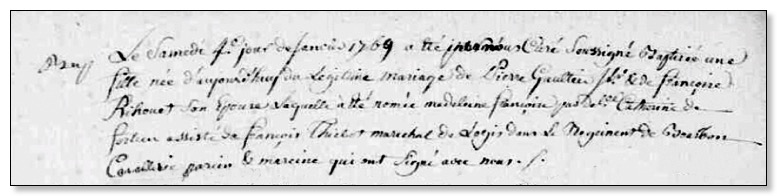 Le Samedi 4e jour de Janvier 1769 a été par nous Curé Soussigné Baptisée une
fille née d'aujourd'huy du Légitime mariage de Pierre Gaultier & de françoise
Rihouet Son Epouse Laquelle a été nomée madeleine françoise par Delle Catherine de
fortien assisté de françois Thielot marechal de Logis dans Le Regiment de Bourbon
Cavallerie parein & mareine qui ont Signé avec nous